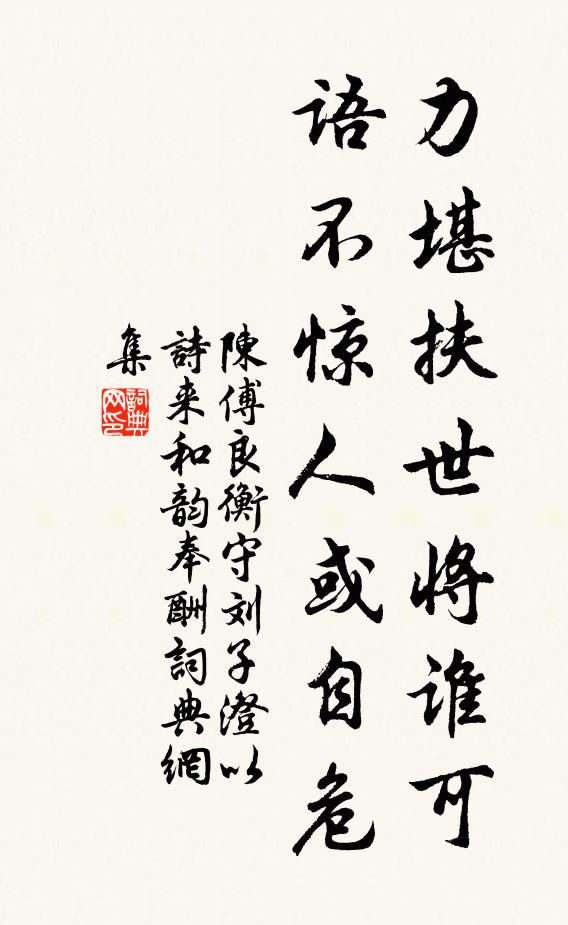 力堪扶世将谁可
语不惊人或自危
陳傅良衡守刘子澄以
詩来和韵奉酬詞典網
集
詞典
网印